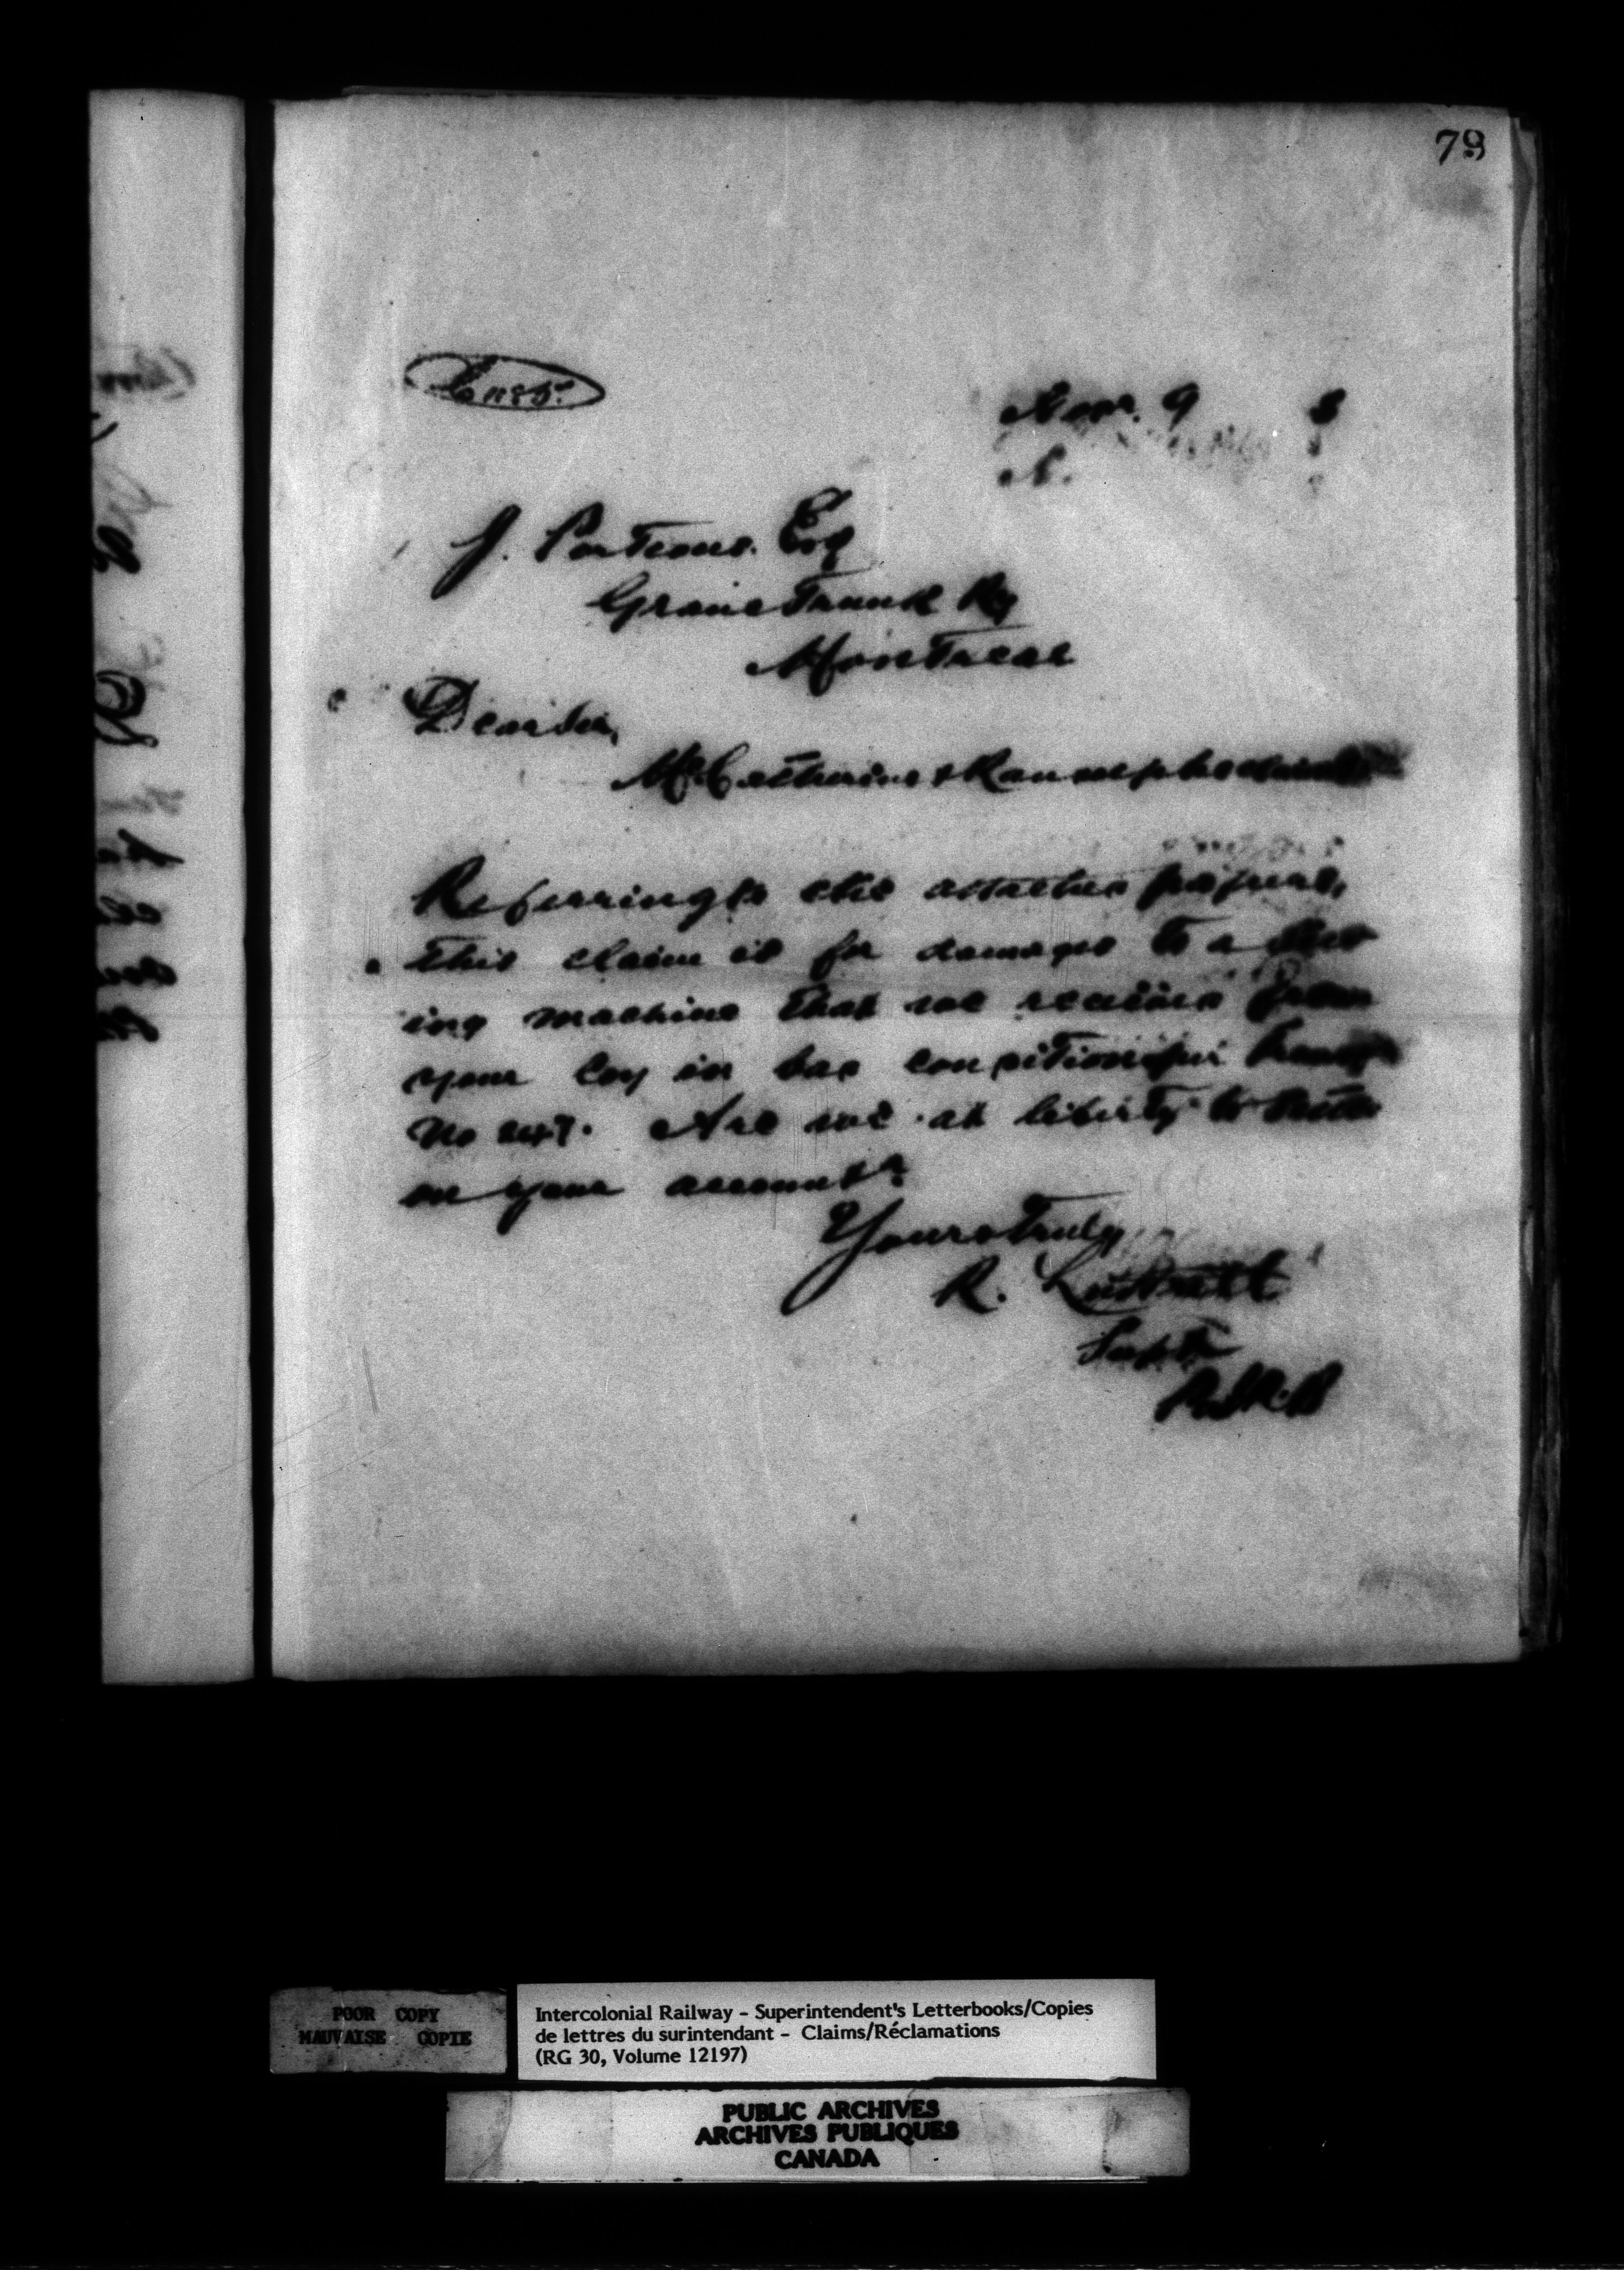 79
Nov. 9 8
N.
J. Porteous. Esq
Grand Trunk Ry
Montreal
Dear Sir,
McCatherine &
Referring to the attached papers,
this claim is for damages to a Sew
ing machine that we received from
your Coy in bad condition
No 247. Are we at liberty to settle
on your account?
Yours truly
R. Luttrell
Supt
POOR COPY
MAUVAISE COPIE
Intercolonial Railway - Superintendent's Letterbooks/Copies
de lettres du surintendant - Claims/Réclamations
(RG 30, Volume 12197)
PUBLIC ARCHIVES
ARCHIVES PUBLIQUES
CANADA